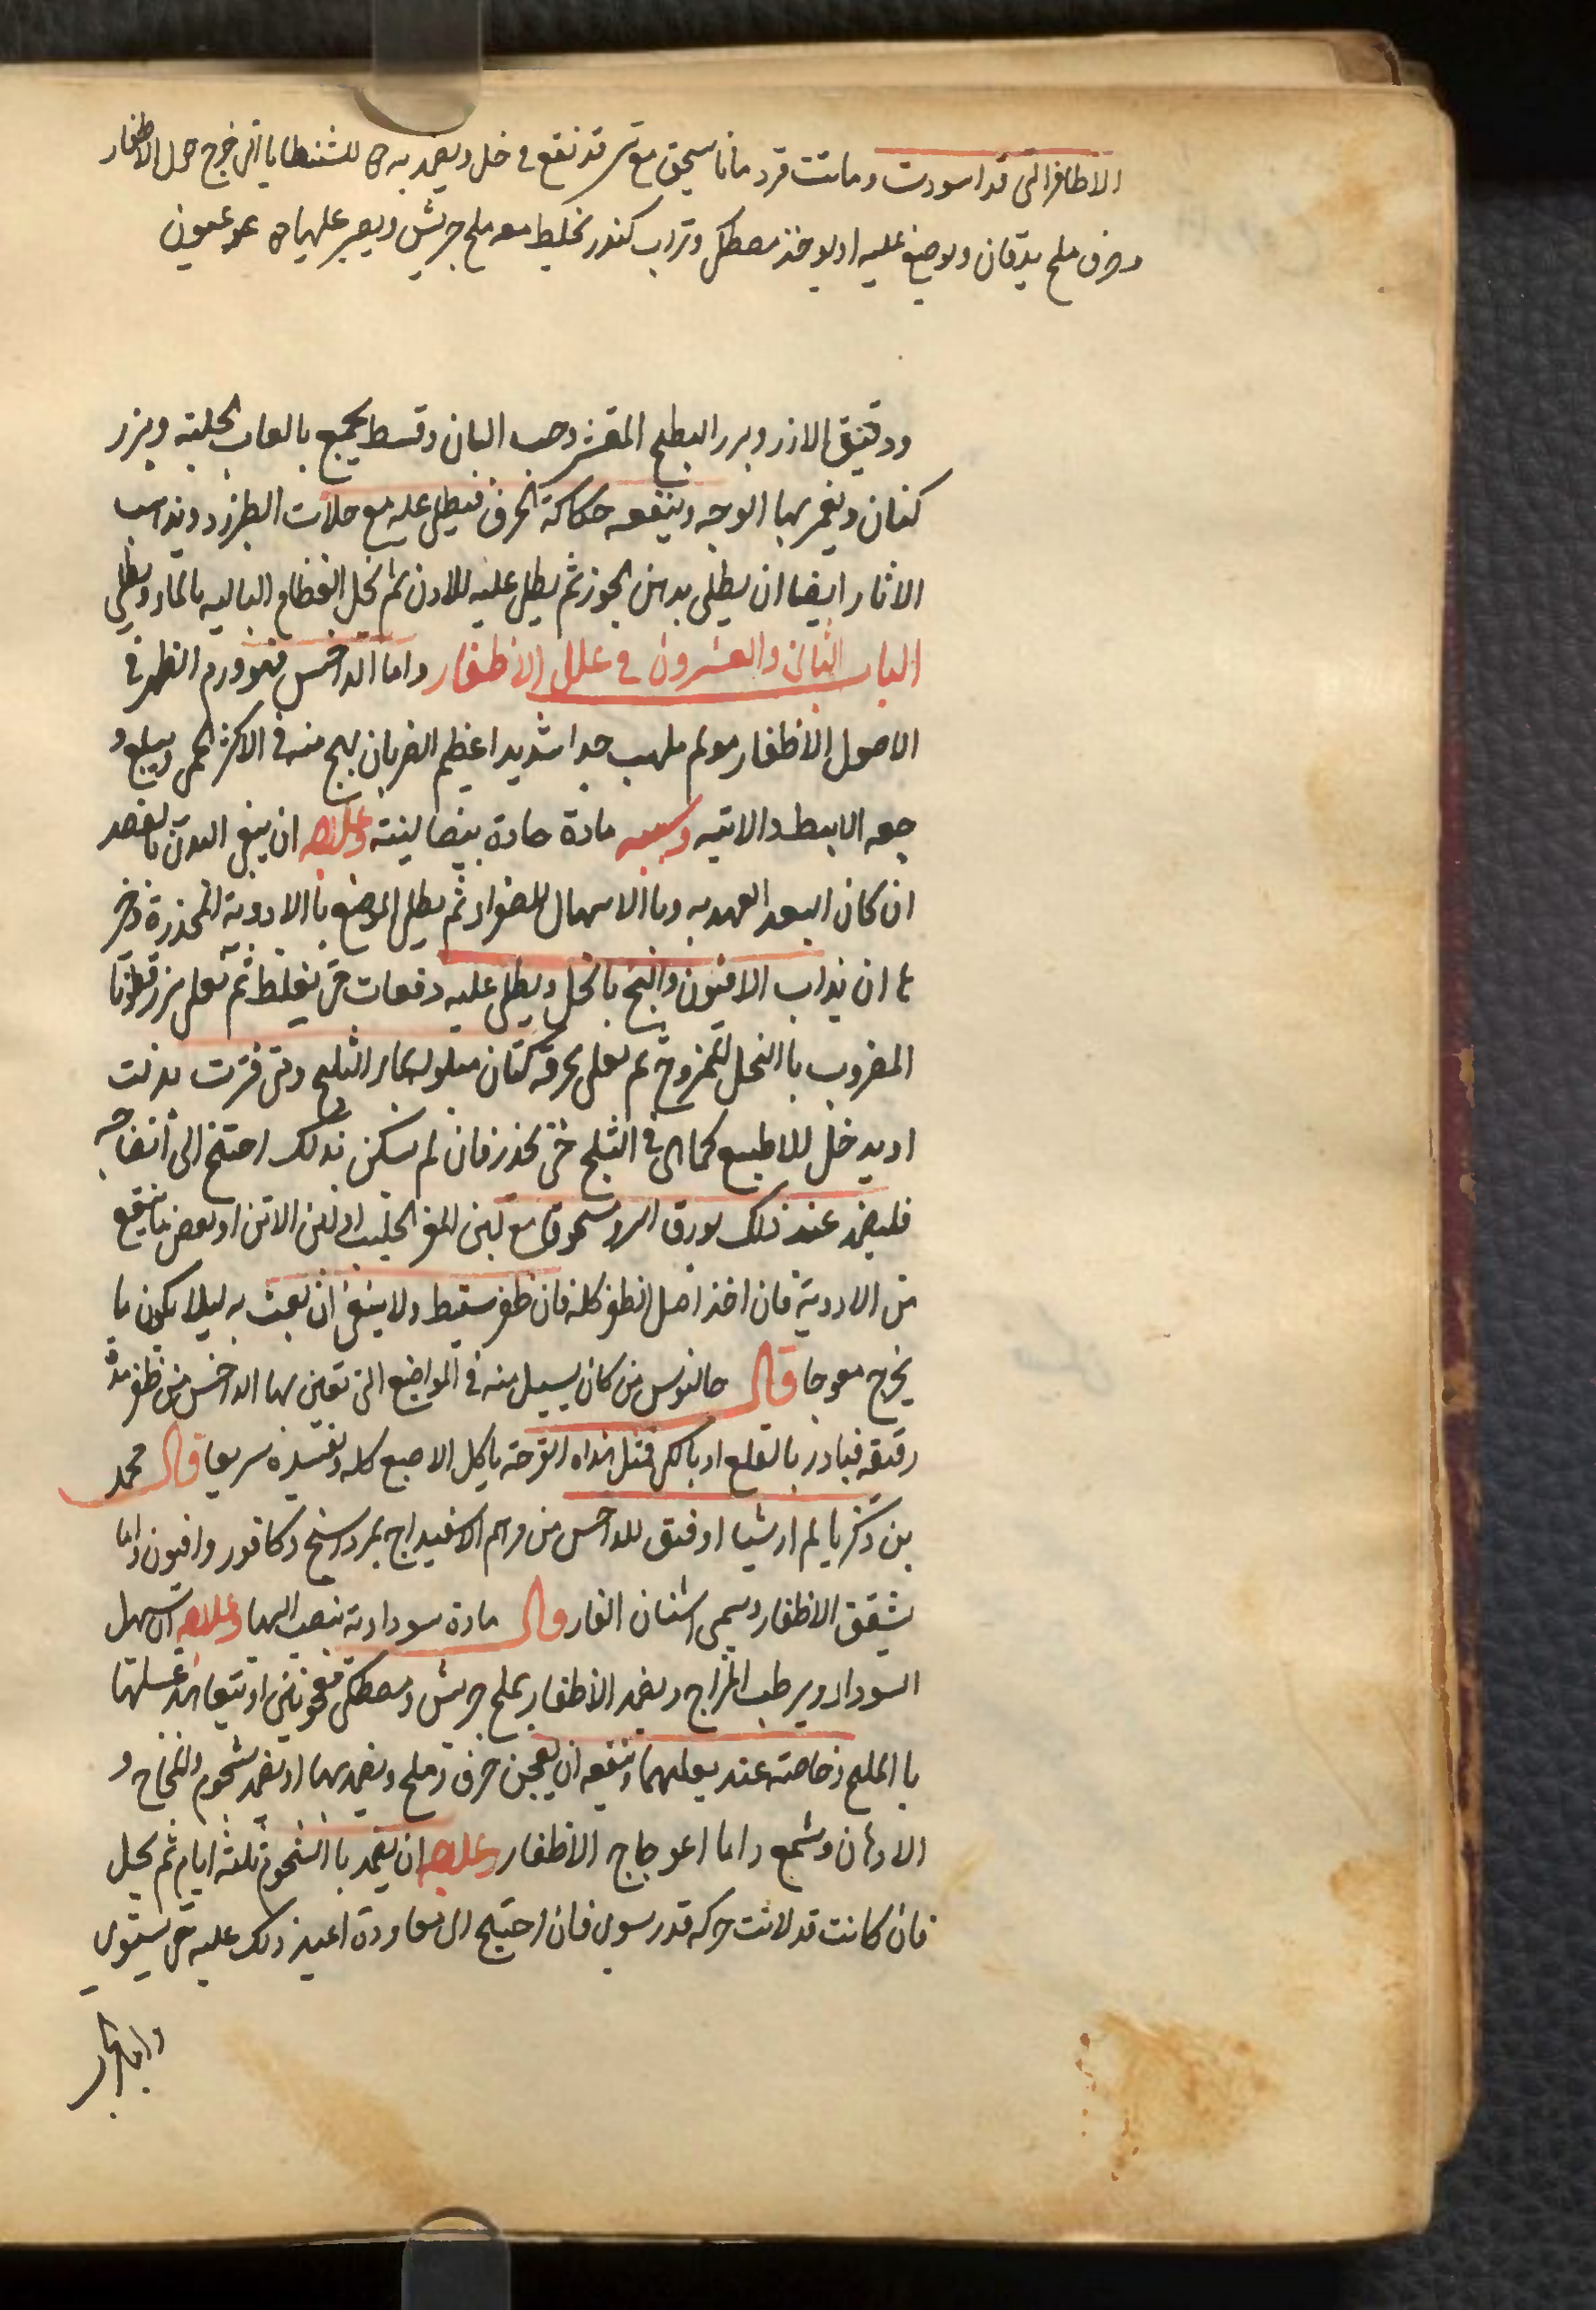 الاظافر التى قد اسودت وماتت قردمانا يسحق مع تمر قد نقع فى خل ويضمد به للشظايا التى تخرج حول الاظفار
وحرف ملح يدقان ويوضع عليه او يوخذ مصطكى وتراب كندر تخليط معه ملح جريش ويصير عليها
ودقيق الارز وبزر البطيخ المقشر وحب البان وقسط يجمع بالعاب الحلبة وبزر
كتان ويغمر بها الوجه وينفعه حكاكة الخزف فيطلى عليه مع الطبرزد ويذهب
الاثار ايضا ان يطلى بدهن الجوز ثم يطلى عليه اللادن ثم تحل العظام الباليه بالماء ويطلى
الباب الثانى والعشرون فى علل الاظفار واما الداخس فهو ورم الظهر فى
الاصول الاظفار مولم ملهب جدا شديدا عظيم الضربان يهيج منه فى الاكثر الحمى ويبلغ و
جعه الابط والاتيه وسببه مادة حادة ينصا لينته وعلاجه ان ينقى البدن بالفصد
ان كان البعد العهد به وبا الاسهال للصفراء ثم يطلى الموضع با الادوية المخدرة وخير
ها ان يذاب الافيون والبنج بالخل ويطلى عليه دفعات حتى يغلظ ثم يعلى بزر قطونا
المضروب با الخل الممزوج ثم يعلى بخرقة كتان مبلوله بماء الثلج ومتى فترت بدلت
او يدخل للاصبع كما هى فى الثلج حتى تخدر فان لم يسكن بذلك احتيج الى انضاجه
فليضمد عند ذلك بورق السرو مسحوقا مع لبن المعز الحليب او لبن الاتن او بعض ما ينقع
من الادوية فان اخذ اصل الظفر كله فان ظفر سيقط ولا ينبغى ان يعبث به ليلا يكون ما
يخرج معوجا قال جالنوس من كان يسيل منه فى المواضع التى تعين بها الداخس من ظفر مدة
رقيقه فبادر بالقلع او بالكى فمثل هذاه القرحة ياكل الاصبع كله ويفسده سريعا قال محمد
بن ذكريا لم ار شيا اوفق للداخس من مرهم الاسفيداج بمرداسنج وكافور وافيون واما
شقق الاظفار وسمى اسنان الفار قال مادة سوداوية تنصب اليها وعلاجه ان يسهل
السوداء ويرطب المزاج ويضمد الاظفار بملح جريش ومصطكى معجونين او يتعاهد غسلها
با الملح وخاصة عند بعلهما وينفعه ان يعجن حرف وملح ويضمد بها او يضمد بشحوم والمخاخ و
الادهان وشمع واما اعوجاج الاظفار وعلاجه ان يضمد با الشحوم ثلثة ايام ثم يحل
فان كانت قد لانت حركه قدر سوى فان احتيج الى معاودة اعيد ذلك عليه حتى يستوى